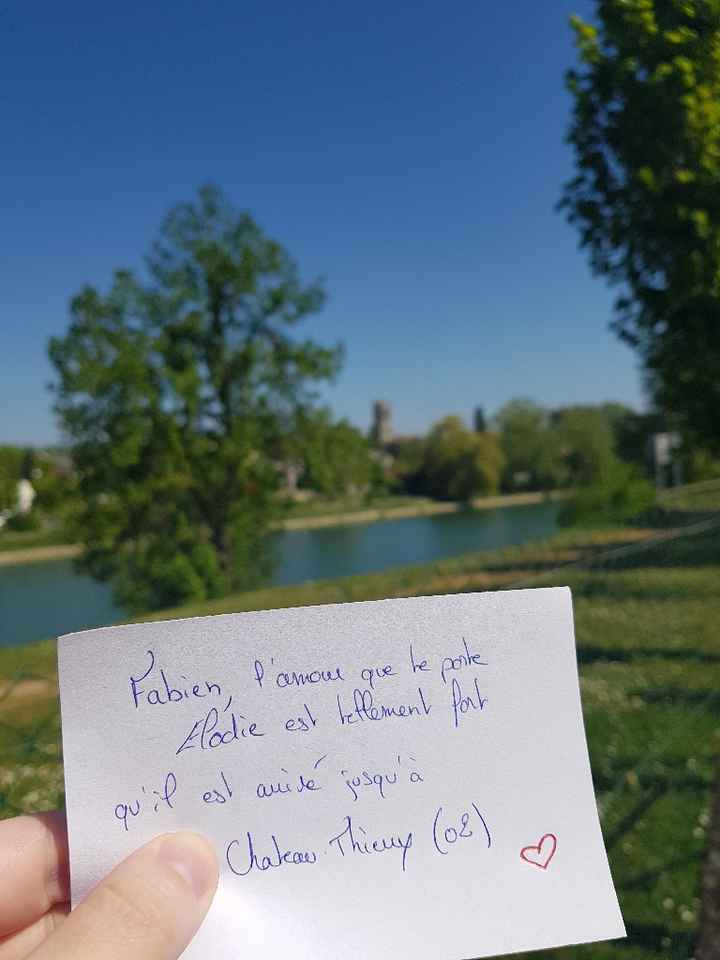 Fabien, l'amour que te porte
Elodie est tellement fort
qu'il est arrivé jusqu'à
Chateau-Thierry (02)